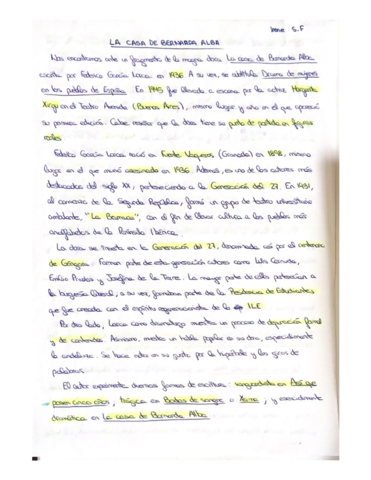 Irene S.F
LA CASA DE BERNARDA ALBA
Nos encontramos ante un fragmento de la magna obra La casa de Bernarda Alba,
escrita por Federico García Lorca en 1936. A su vez, se subtitula Drama de mujeres
en los pueblos de España. En 1945 fue llevada a escena por la actriz Margarita
Xirgu en el Teatro Avenida (Buenos Aires), mismo lugar y año en el que apareció
su primera edición. Cabe resaltar que la obra tiene su punto de partida en figuras
reales.
Federico García Lorca nació en Fuente Vaqueros (Granada) en 1898, mismo
lugar en el que murió asesinado en 1936. Además, es uno de los autores más
destacados del siglo XX, perteneciendo a la Generación del 27. En 1931,
al comienzo de la Segunda República, formó un grupo de teatro universitario
ambulante, "La Barraca", con el fin de llevar cultura a los pueblos más
analfabetos de la Península Ibérica.
La obra se inserta en la Generación del 27, denominada así por el centenario
de Góngora. Forman parte de esta generación autores como Luis Cernuda,
Emilio Prados y Josefina de la Torre. La mayor parte de ellos pertenecían a
la burguesía liberal, a su vez, formaban parte de la Residencia de Estudiantes,
que fue creada con el espíritu regeneracionista de la ILE.
Por otro lado, Lorca como dramaturgo muestra un proceso de depuración formal
y de contenidos. Asimismo, muestra un habla popular en su obra, especialmente
la andaluza. Se hace notar en su gusto por la hipérbole y los giros de
palabras.
El autor experimenta diversas formas de escritura: vanguardista en Así que
pasen cinco años, trágica en Bodas de sangre o Yerma, y esencialmente
dramática en La casa de Bernarda Alba.